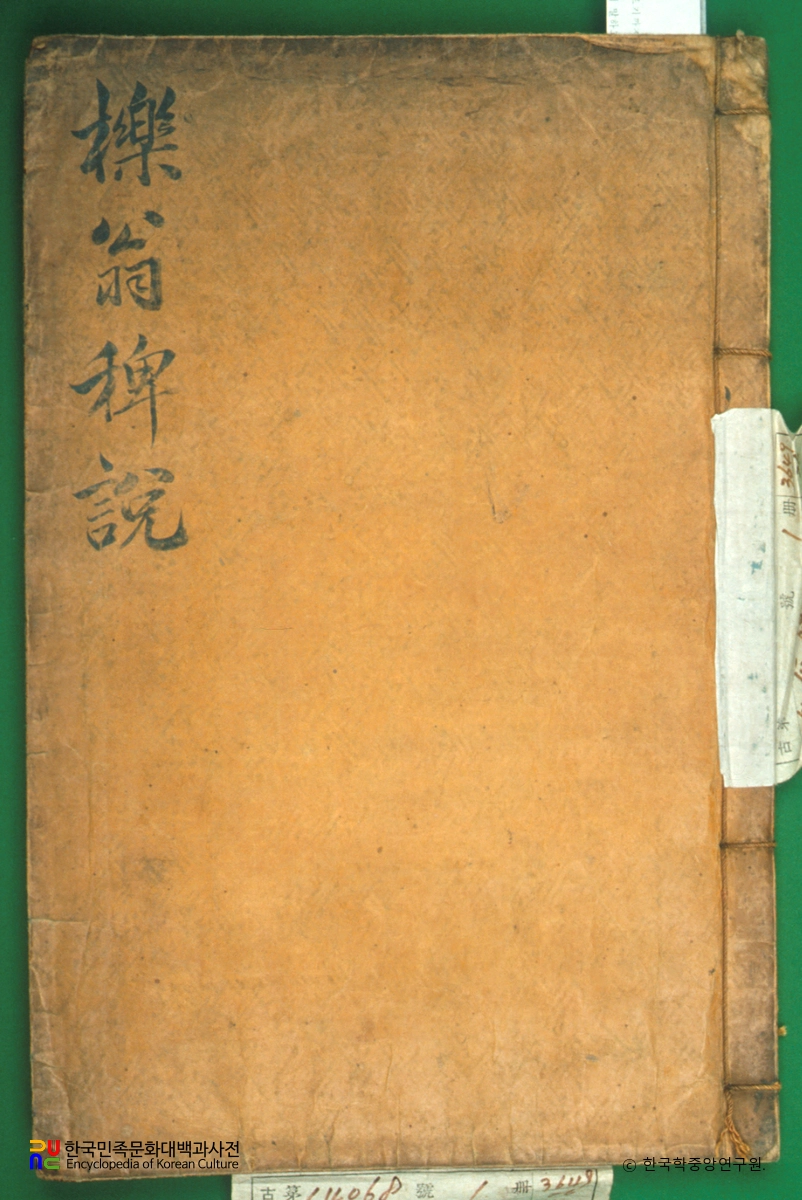 櫟翁稗說
3649
冊
1
號
古
한국민족문화대백과사전
Encyclopedia of Korean Culture
© 한국학중앙연구원.
古 第 14068 號 1 冊 3649